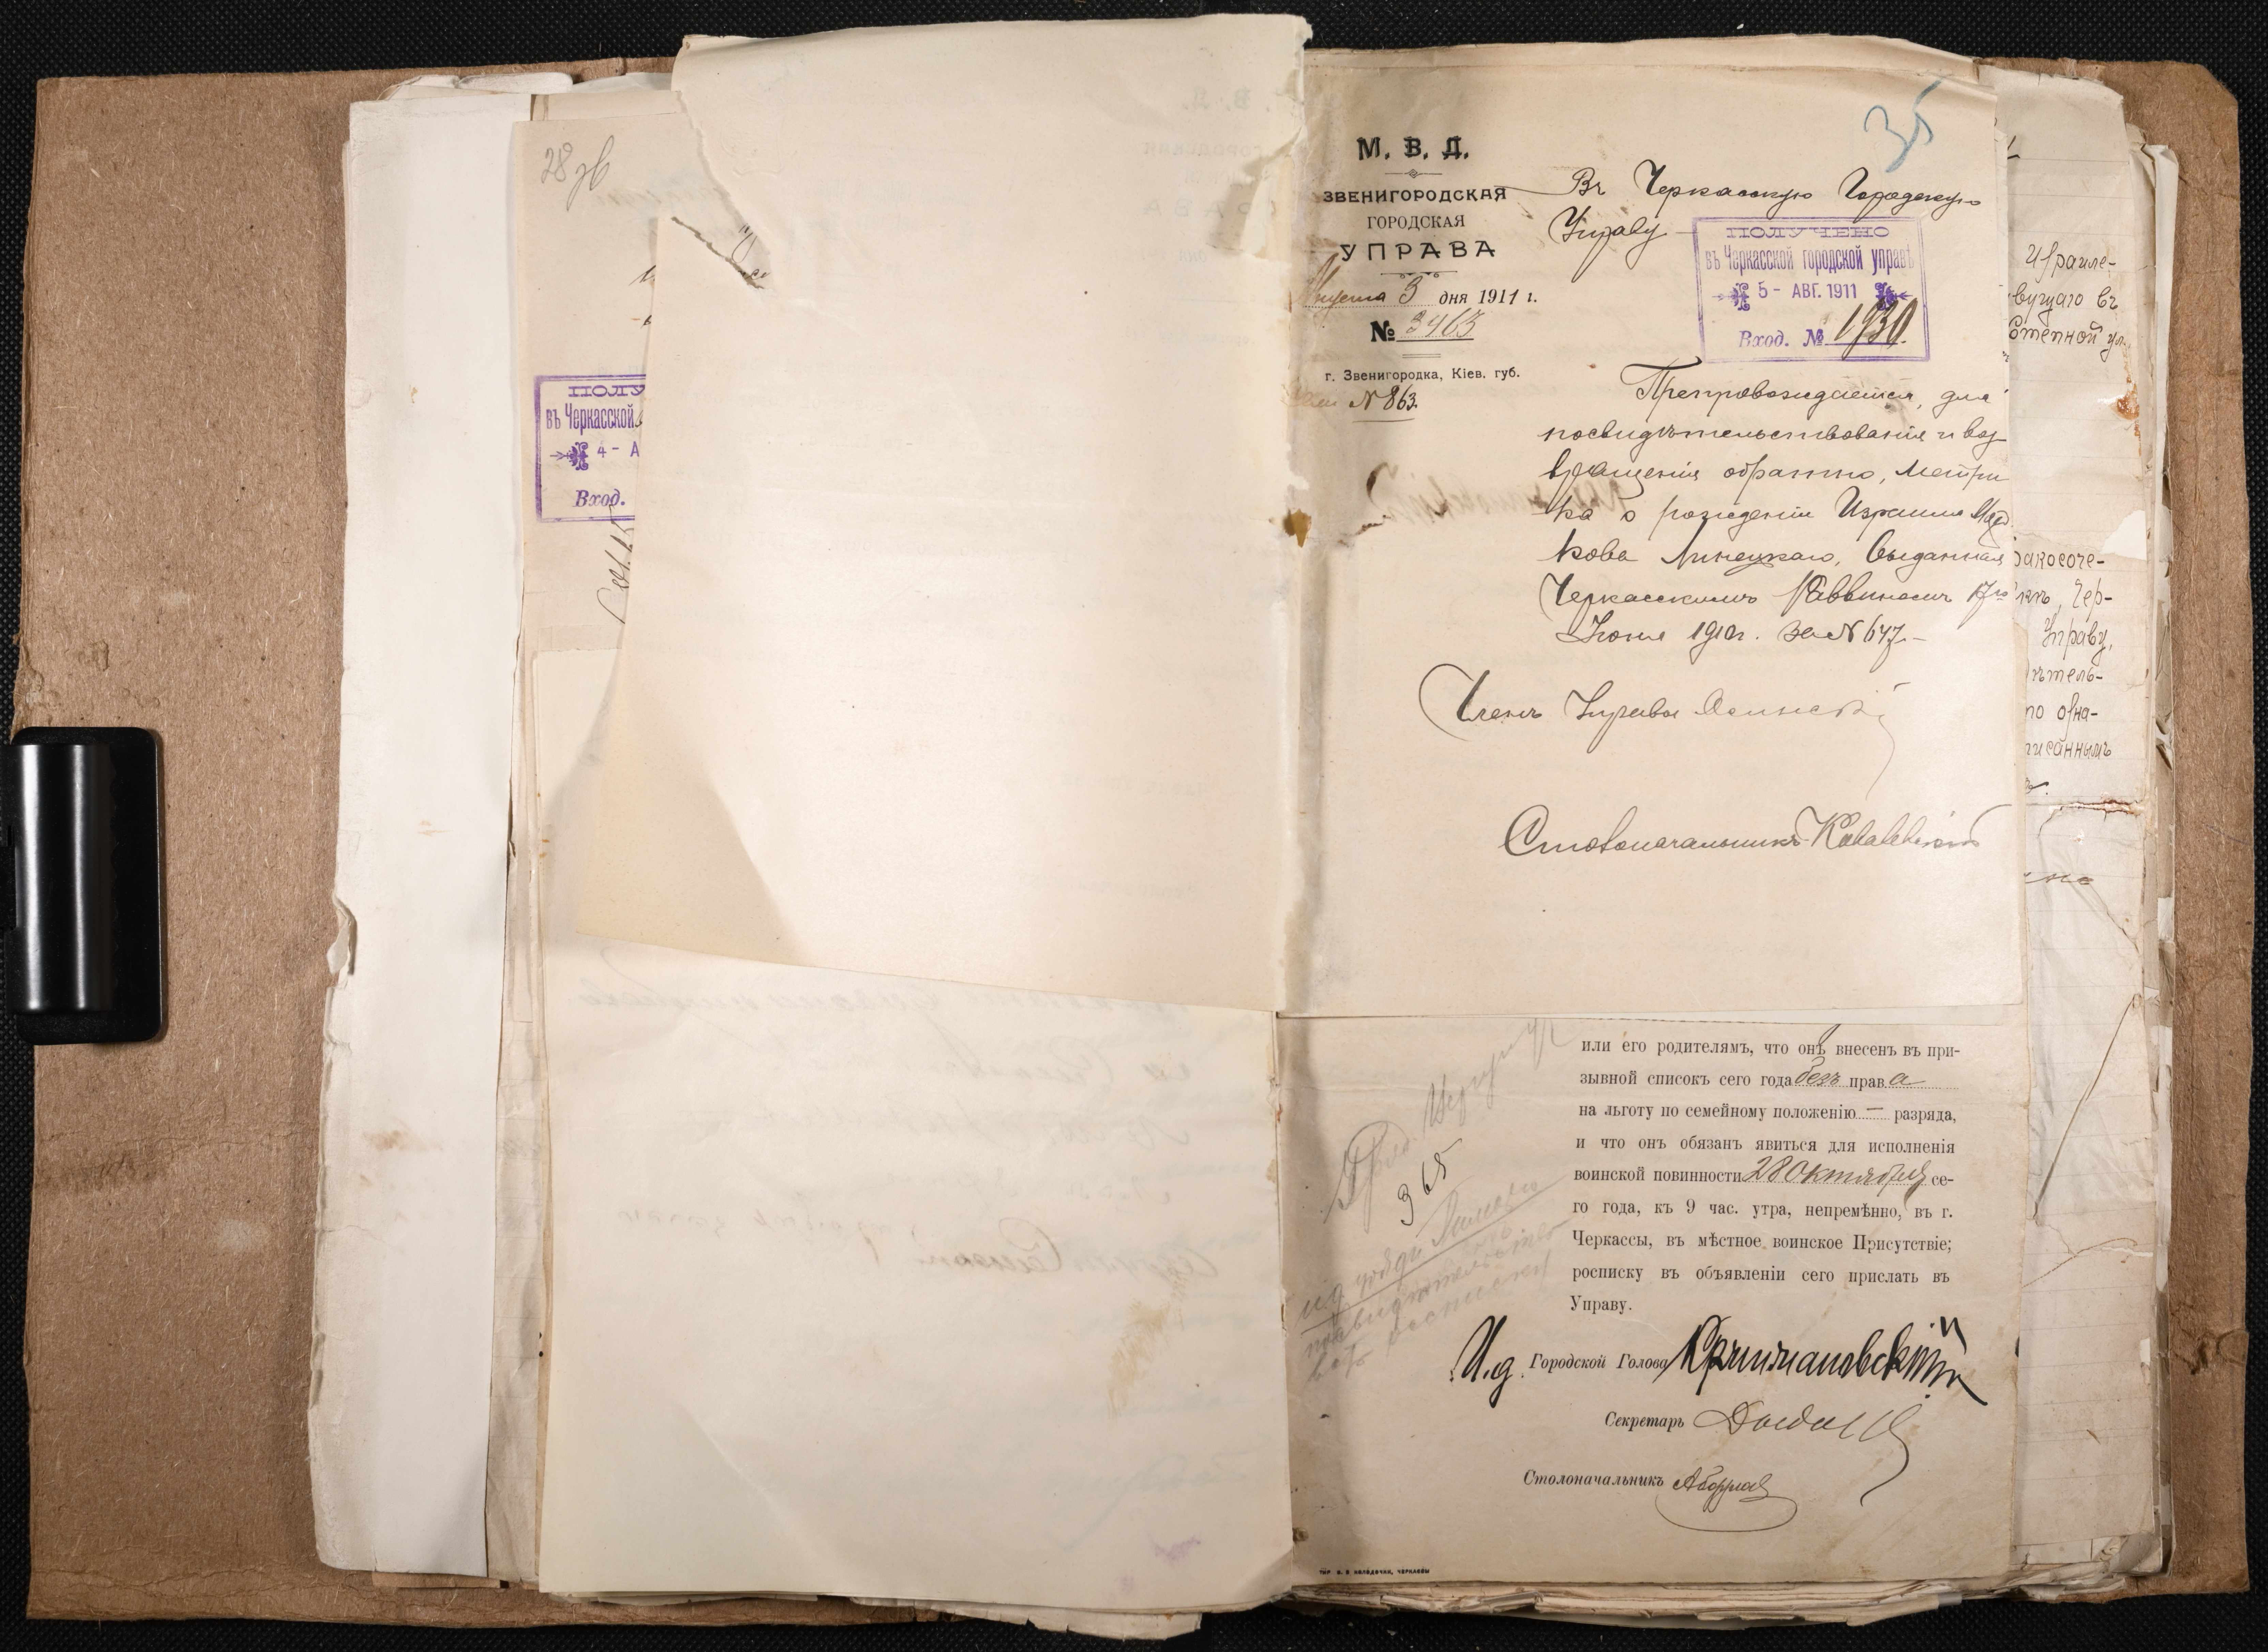 28 об
ПОЛУ
въ Черкасской
4 - А
Вход.
35
М. В. Д.
ЗВЕНИГОРОДСКАЯ
ГОРОДСКАЯ
УПРАВА
Августа 3 дня 1911 г.
№ 3463
г. Звенигородка, Кіев. губ.
№ 863.
Въ Черкасскую Городскую
Управу
ПОЛУЧЕНО
въ Черкасской городской управѣ
5 - АВГ. 1911
Вход. № 1930.
Препровождается, для
посвидѣтельствованія и воз-
вращенія обратно, метри
ка о рожденіи Израиля
кова Линецкаго, выданная
Черкасскимъ Раввиномъ 17го
Іюня 1910г. за № 647.-
Членъ Управы
Столоначальникъ
Израиле-
вущаго въ
Степной ул.
акосоче-
Чер-
Управу,
ѣтель-
по озна-
писаннымъ
или его родителямъ, что онъ внесенъ въ при-
зывной списокъ сего года безъ права
на льготу по семейному положенію — разряда,
и что онъ обязанъ явиться для исполненія
воинской повинности 28 октября се-
го года, къ 9 час. утра, непремѣнно, въ г.
Черкассы, въ мѣстное воинское Присутствіе;
росписку въ объявленіи сего прислать въ
Управу.
965
И.д. Городской Голова
Секретарь
Столоначальникъ